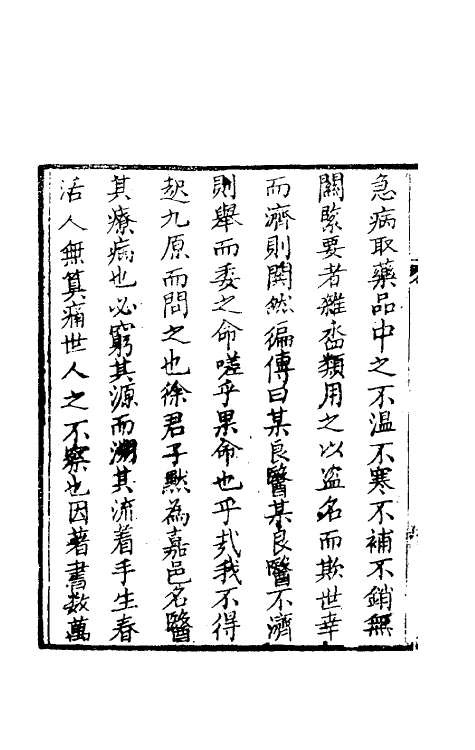 急病取藥品中之不溫不寒不補不銷無
關緊要者雜沓類用之以盜名而欺世幸
而濟則鬨然徧傳曰某良醫某良醫不濟
則舉而委之命嗟乎果命也乎哉我不得
起九原而問之也徐君子默為嘉邑名醫
其療病也必窮其源而溯其流着手生春
活人無算痛世人之不察也因著書数萬